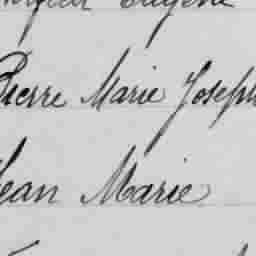 Eugène
Pierre Marie Joseph
Jean Marie